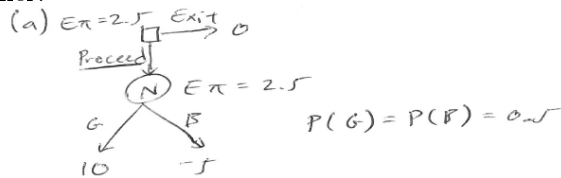 (a) Eπ = 2.5 Exit 0
Proceed
N Eπ = 2.5
G B P(G) = P(B) = 0.5
10 -5